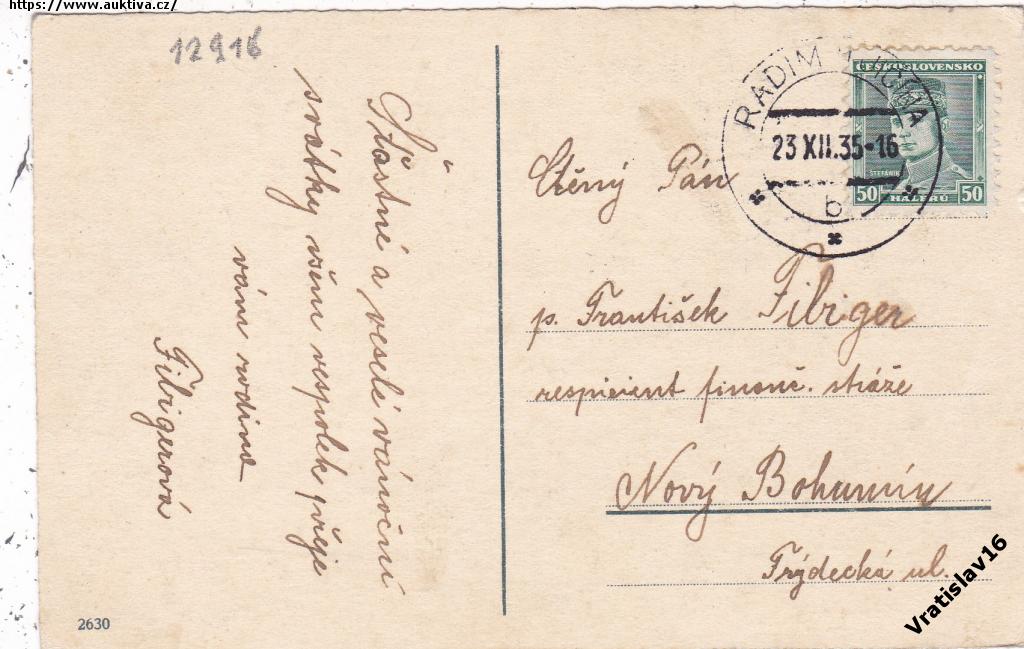 https://www.auktiva.cz/
12916
Šťastné a veselé vánoční
svátky všem vespolek přeje
vám rodina
Fibigerová
2630
RADIM
23 XII.35-16
b
ČESKOSLOVENSKO
ŠTEFÁNIK
50 HALÉŘŮ 50
Ctěný Pán
p. František Fibiger
respicient finanč. stráže
Nový Bohumín
Frýdecká ul.
Vratislav16